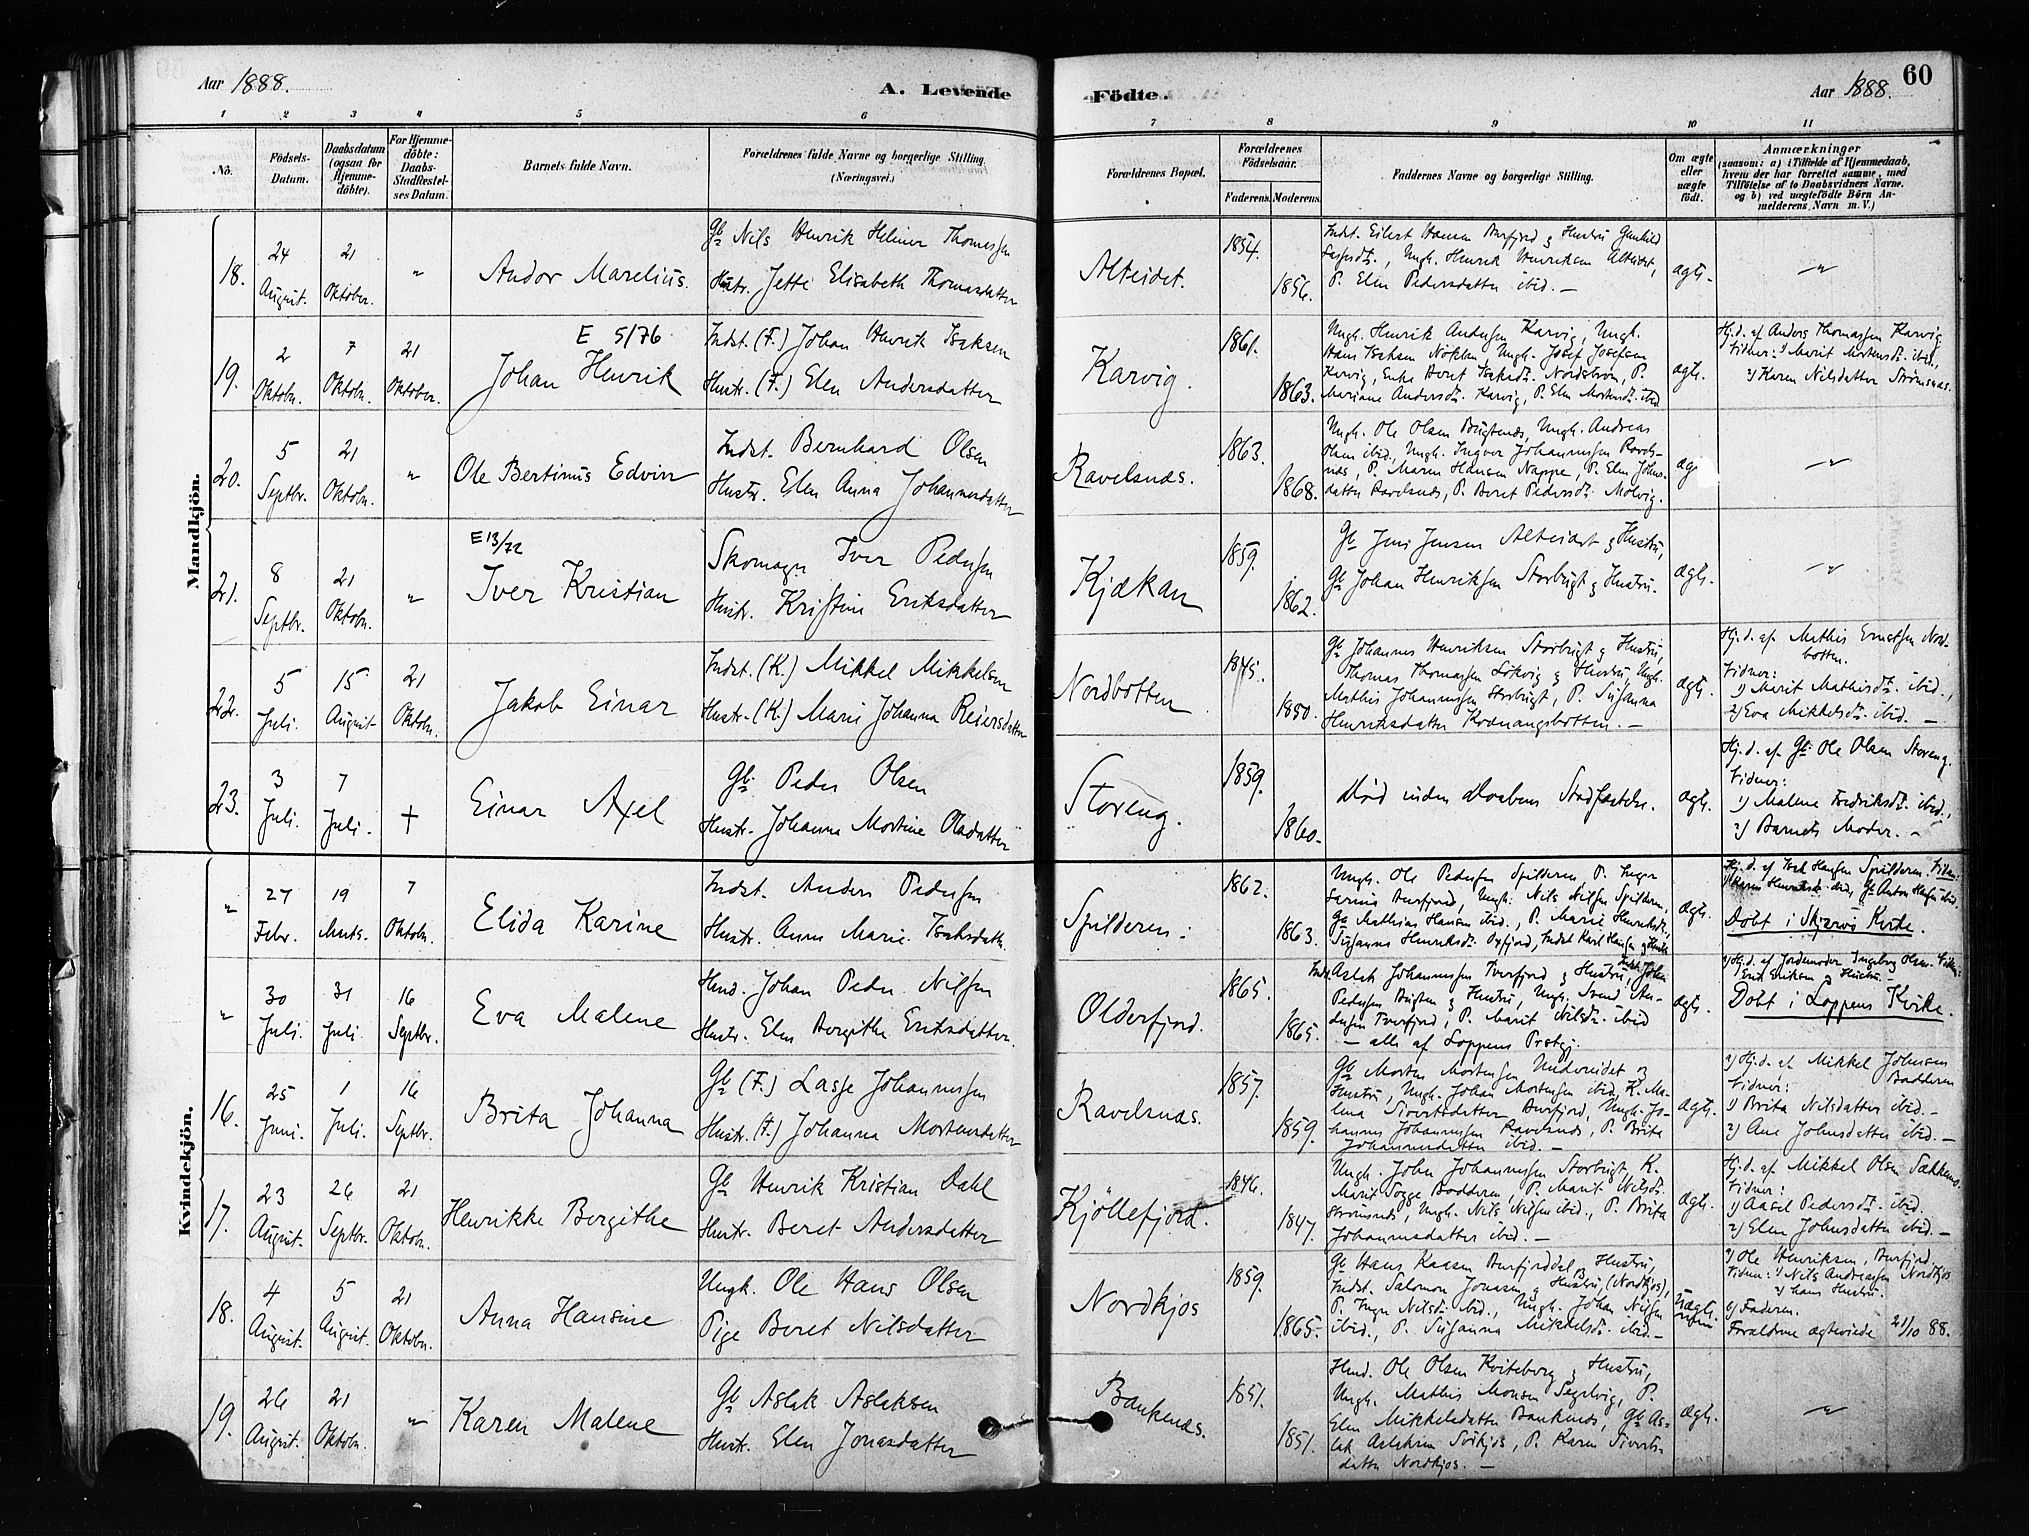 Aar 1888.
A. Levende
Födte.
Aar 1888.
60
1 2 3 4 5 6 7 8 9 10 11
No.
Födsels-Datum.
Daabsdatum (ogsaa for Hjemme-döbte).
For Hjemme-döbte: Daabs-Stadfæstel-ses Datum.
Barnets fulde Navn.
Forældrenes fulde Navne og borgerlige Stilling (Næringsvei.)
Forældrenes Bopæl.
Forældrenes Födselsaar.
Faderens. Moderens.
Faddernes Navne og borgerlige Stilling.
Om ægte eller uægte födt.
Anmærkninger
(saasom: a) i Tilfælde af Hjemmedaab, hvem der har forrettet samme, med Tilföielse af to Daabsvidners Navne, og b) ved uægtefödte Börn An-melderens Navn m. V.)
Mandkjön.
18.
24 August.
21 Oktober.
"
Andor Marelius.
Gb Nils Henrik Helmer Thomassen
Hustr. Jette Elisabeth Thomasdatter
Alteidet.
1854.
1856.
Indst. Eilert Hansen Burfjord & Hustru Gunhild
Ungk. Henrik Henriksen Alteidet,
P. Elen Pedersdatter ibid. —
ægte.
"
19.
2 Oktobr.
7 Oktobr.
21 Oktober.
E 5/76
Johan Henrik
Indst. (F.) Johan Henrik Isaksen
Hustr. (F.) Elen Andersdatter
Karvig.
1861.
1863.
Ungk. Henrik Andersen Karvig, Ungk.
Hans Isaksen Ungk. Josef Josefsen
Karvig, Enke Beret Isaksdt. Nordström, P.
Mariane Andersdt. Karvig, P. Elen Mortensdt. ibid
ægte.
Hj.d. af Anders Thomassen Karvig
Vidner: 1) Marit Mortensdt. ibid.,
2) Karen Nilsdatter Strömsnæs.
20.
5 Septbr.
21 Oktobr.
"
Ole Bertinus Edvin
Indst. Bernhard Olsen
Hustr. Elen Anna Johannesdatter
Ravelsnæs.
1863.
1868.
Ungk. Ole Olsen Ungk. Andreas
Olsen ibid, Ungk. Ingvor Johannessen Ravels-
næs, P. Maren Hansen Nappe, P. Elen Johns-
datter Ravelsnæs, P. Beret Pedersdt. Molvig.
æg
"
21.
8 Septbr.
21 Oktobr.
"
E 13/72
Iver Kristian
Skomager Iver Pedersen
Hustr. Kristine Eriksdatter
Kjækan
1859.
1862.
Gb Jens Jensen Alteidet & Hustru,
Gb Johan Henriksen Storbugt & Hustru.
ægte.
"
22.
5 Juli.
15 August
21 Oktobr.
Jakob Einar
Indst. (K.) Mikkel Mikkelsen
Hustr. (K.) Marie Johanna Reiersdatter
Nordbotten
1845.
1850.
Gb Johannes Henriksen Storbugt & Hustru,
Thomas Thomassen Lökvig & Hustru, Ungk.
Mathis Johannessen Storbugt, P. Susanna
Henriksdatter Kvænangsbotten. —
ægte.
Hj.d. af Mathis Ernstsen Nord-
botten.
Vidner:
1) Marit Mathisdt. ibid.,
2) Eva Mikkelsdt. ibid. —
23.
3 Juli.
7 Juli.
†
Einar Axel
Gb. Peder Olsen
Hustr. Johanna Mortine Olsdatter
Storeng.
1859.
1860.
Död inden Daabens Stadfæstelse.
ægte.
Hj.d. af Gb. Ole Olsen Storeng.
Vidner:
1) Malene Fredriksdt. ibid.,
2) Barnets Moder. —
Kvindekjön.
"
27 Febr.
19 Marts.
7 Oktobr.
Elida Karine
Indst. Anders Pedersen
Hustr. Anne Marie Isaksdatt.
Spilderen.
1862.
1863.
Ungk. Ole Pedersen Spilderen, P. Inger
Burfjord, Ungk. Nils Nilsen Spilderen,
Gb Mathias Hansen ibid., P. Marie Henriksdt.,
Susanna Henriksdt. Oxfjord, Indst Karl Hansen & Hustr
ægte.
Hj.d. af Isak Hansen Spilderen. Vidner:
Döbt i Skjervö Kirke.
"
30 Juli.
31 Juli.
16 Septbr.
Eva Malene
Hmd. Johan Peder Nilsen
Hustr. Elen Bergithe Eriksdatter.
Olderfjord.
1865.
1865.
Indst. Aslak Johannessen Tverfjord & Hustru, Johan
Pedersen & Hustru, Ungk. Svend An-
dersen Tverfjord, P. Marit Nilsdt. ibid
— alle af Loppens Prstgj.
ægte.
Hj.d. af Jordemoder Ingeborg Olsen. Vidner:
Erik Eriksen & Hustru. —
Döbt i Loppens Kirke.
16.
25 Juni.
1 Juli.
16 Septbr.
Brita Johanna
Gb (F.) Lasse Johannessen
Hustr. (F.) Johanna Mortensdatter
Ravelsnæs.
1857.
1859.
Gb Morten Mortensen Undereidet &
Hustru, Ungk. Johan Mortensen ibid, K. Ma-
lena Sivertsdatter Burfjord, Ungk. Jo-
hannes Johannessen Ravelsnæs, P. Brita
Johannesdatter ibid. —
ægte.
Hj.d. af Mikkel Johnsen
Badderen
Vidner:
1) Brita Nilsdatter ibid. —
2) Ane Johnsdatter ibid. —
17.
23 August.
26 Septbr.
21 Oktobr.
Henrikke Bergithe
Gb Henrik Kristian Dahl
Hustr. Beret Andersdatter
Kjöllefjord.
1846.
1847.
Ungk. John Johannessen Storbugt, K.
Marit Sogge Badderen, P. Marit Nilsdt.
Strömsnæs, Ungk. Nils Nilsen ibid., P. Brita
Johannesdatter ibid. —
ægte.
Hj.d. af Mikkel Olsen Sækkemo.
Vidner:
1) Aasel Pedersdt. ibid.
2) Elen Johnsdatter ibid. —
18.
4 August.
5 August.
21 Oktobr.
Anna Hansine
Ungk. Ole Hans Olsen
Pige Beret Nilsdatter
Nordkjos
1859.
1865.
Gb Hans Kaasen Burfjorddal & Hustru,
Indst. Salomon Jonasen & Hustru (Nordkjos),
P. Inger Nilsdt. ibid., Ungk. Johan Nilsen
ibid., P. Susanna Mikkelsdt. ibid. —
Uægte.
Ole Henriksen, Burfjord.
Vidner: 1) Nils Andreassen Nordkjos
2) hans Hustru.
Faderen.
Forældrene ægteviede 21/10 88.
19.
26 August.
21 Oktobr.
"
Karen Malene
Gb Aslak Aslaksen
Hustr. Elen Jonasdatter
Bankenæs.
1851.
1851.
Hmd. Ole Olsen Kviteberg & Hustru,
Ungk. Mathis Monsen Segelvig, P.
Elen Mikkelsdatter Bankenæs, Gb As-
lak Aslaksen Sörkjos, P. Karen Siverts-
datter Nordkjos. —
ægte.
"